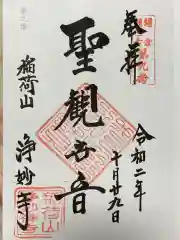 奉拝
第九番
令和二年
十月廿九日
聖観世音
稲荷山
浄妙寺